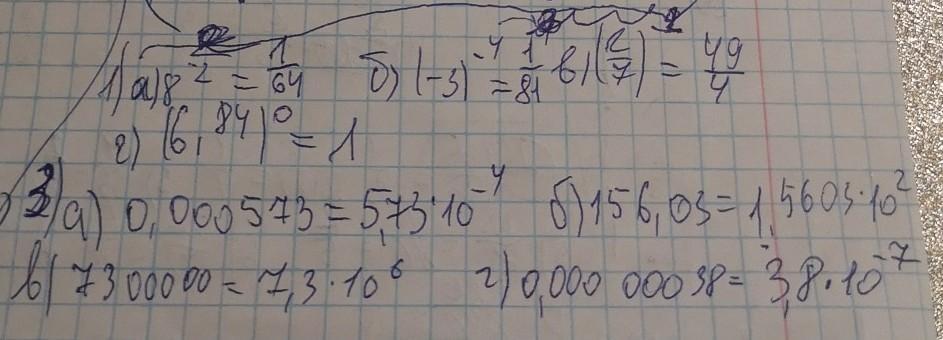 1) а) 8^-2 = 1/64 б) (-3)^-4 = 1/81 в) (2/7) = 49/4
г) (6,84)^0 = 1
3) а) 0,000573 = 5,73·10^-4 б) 156,03 = 1,5603·10^2
в) 7300000 = 7,3·10^6 г) 0,000 00038 = 3,8·10^-7